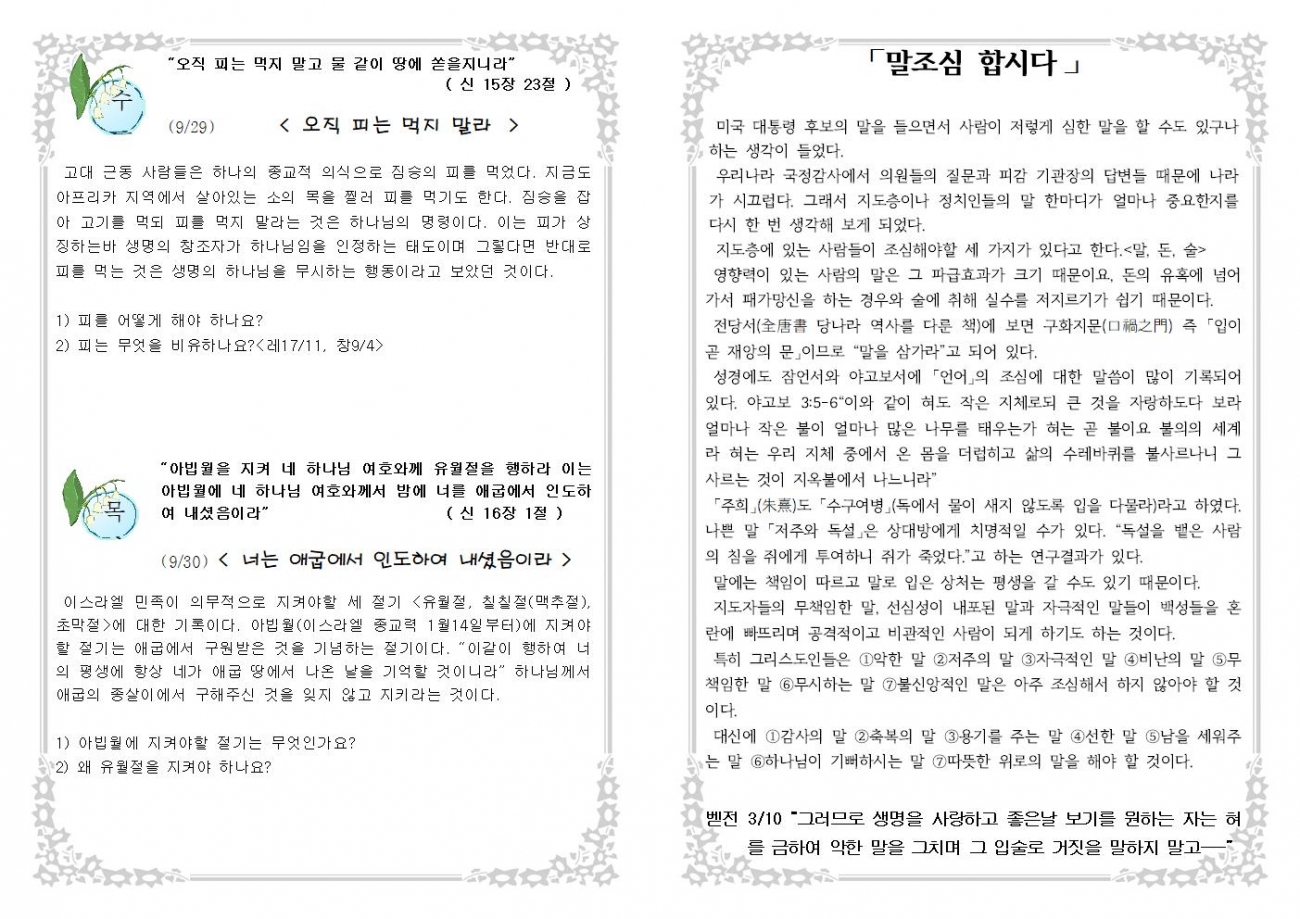 수
"오직 피는 먹지 말고 물 같이 땅에 쏟을지니라"
( 신 15장 23절 )
(9/29) < 오직 피는 먹지 말라 >
고대 근동 사람들은 하나의 종교적 의식으로 짐승의 피를 먹었다. 지금도
아프리카 지역에서 살아있는 소의 목을 찔러 피를 먹기도 한다. 짐승을 잡
아 고기를 먹되 피를 먹지 말라는 것은 하나님의 명령이다. 이는 피가 상
징하는바 생명의 창조자가 하나님임을 인정하는 태도이며 그렇다면 반대로
피를 먹는 것은 생명의 하나님을 무시하는 행동이라고 보았던 것이다.
1) 피를 어떻게 해야 하나요?
2) 피는 무엇을 비유하나요?<레17/11, 창9/4>
목
"아빕월을 지켜 네 하나님 여호와께 유월절을 행하라 이는
아빕월에 네 하나님 여호와께서 밤에 너를 애굽에서 인도하
여 내셨음이라" ( 신 16장 1절 )
(9/30) < 너는 애굽에서 인도하여 내셨음이라 >
이스라엘 민족이 의무적으로 지켜야할 세 절기 <유월절, 칠칠절(맥추절),
초막절>에 대한 기록이다. 아빕월(이스라엘 종교력 1월14일부터)에 지켜야
할 절기는 애굽에서 구원받은 것을 기념하는 절기이다. "이같이 행하여 너
의 평생에 항상 네가 애굽 땅에서 나온 날을 기억할 것이니라" 하나님께서
애굽의 종살이에서 구해주신 것을 잊지 않고 지키라는 것이다.
1) 아빕월에 지켜야할 절기는 무엇인가요?
2) 왜 유월절을 지켜야 하나요?
「말조심 합시다」
미국 대통령 후보의 말을 들으면서 사람이 저렇게 심한 말을 할 수도 있구나
하는 생각이 들었다.
우리나라 국정감사에서 의원들의 질문과 피감 기관장의 답변들 때문에 나라
가 시끄럽다. 그래서 지도층이나 정치인들의 말 한마디가 얼마나 중요한지를
다시 한 번 생각해 보게 되었다.
지도층에 있는 사람들이 조심해야할 세 가지가 있다고 한다.<말, 돈, 술>
영향력이 있는 사람의 말은 그 파급효과가 크기 때문이요, 돈의 유혹에 넘어
가서 패가망신을 하는 경우와 술에 취해 실수를 저지르기가 쉽기 때문이다.
전당서(全唐書 당나라 역사를 다룬 책)에 보면 구화지문(口禍之門) 즉 「입이
곧 재앙의 문」이므로 "말을 삼가라"고 되어 있다.
성경에도 잠언서와 야고보서에 「언어」의 조심에 대한 말씀이 많이 기록되어
있다. 야고보 3:5-6"이와 같이 혀도 작은 지체로되 큰 것을 자랑하도다 보라
얼마나 작은 불이 얼마나 많은 나무를 태우는가 혀는 곧 불이요 불의의 세계
라 혀는 우리 지체 중에서 온 몸을 더럽히고 삶의 수레바퀴를 불사르나니 그
사르는 것이 지옥불에서 나느니라"
「주희」(朱熹)도 「수구여병」(독에서 물이 새지 않도록 입을 다물라)라고 하였다.
나쁜 말 「저주와 독설」은 상대방에게 치명적일 수가 있다. "독설을 뱉은 사람
의 침을 쥐에게 투여하니 쥐가 죽었다."고 하는 연구결과가 있다.
말에는 책임이 따르고 말로 입은 상처는 평생을 갈 수도 있기 때문이다.
지도자들의 무책임한 말, 선심성이 내포된 말과 자극적인 말들이 백성들을 혼
란에 빠뜨리며 공격적이고 비관적인 사람이 되게 하기도 하는 것이다.
특히 그리스도인들은 ①악한 말 ②저주의 말 ③자극적인 말 ④비난의 말 ⑤무
책임한 말 ⑥무시하는 말 ⑦불신앙적인 말은 아주 조심해서 하지 않아야 할 것
이다.
대신에 ①감사의 말 ②축복의 말 ③용기를 주는 말 ④선한 말 ⑤남을 세워주
는 말 ⑥하나님이 기뻐하시는 말 ⑦따뜻한 위로의 말을 해야 할 것이다.
벧전 3/10 "그러므로 생명을 사랑하고 좋은날 보기를 원하는 자는 혀
를 금하여 악한 말을 그치며 그 입술로 거짓을 말하지 말고──"